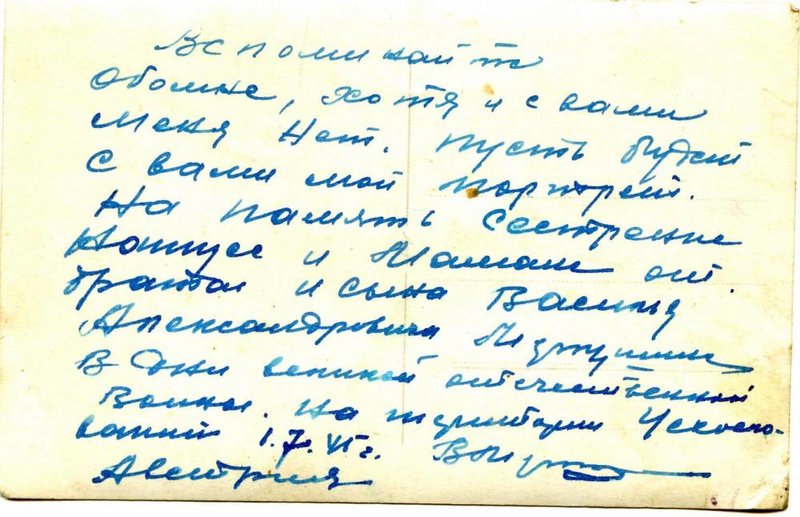 Вспоминайте
обомне, хотя и с вами
меня нет. пусть будет
с вами мой портрет.
На память Сестренке
и Мамаши от
братая и сына Василия
Александровича
В дни великой отечественной
Воины. на территории Чехосло-
вакий 1.7.45 г.
Австрия